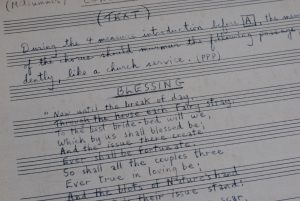 (Midsummer)
(THAT)
During the 4 measure introduction before [A], the
of the chorus should murmur the following passage
dently, like a church service. (PPP)
BLESSING
"Now until the break of day,
Through the house each fairy stray.
To the best bride-bed will we,
Which by us shall blessed be;
And the issue there create
Ever shall be fortunate.
So shall all the couples three
Ever true in loving be;
And the blots of Nature's hand
their issue stand;
scar,